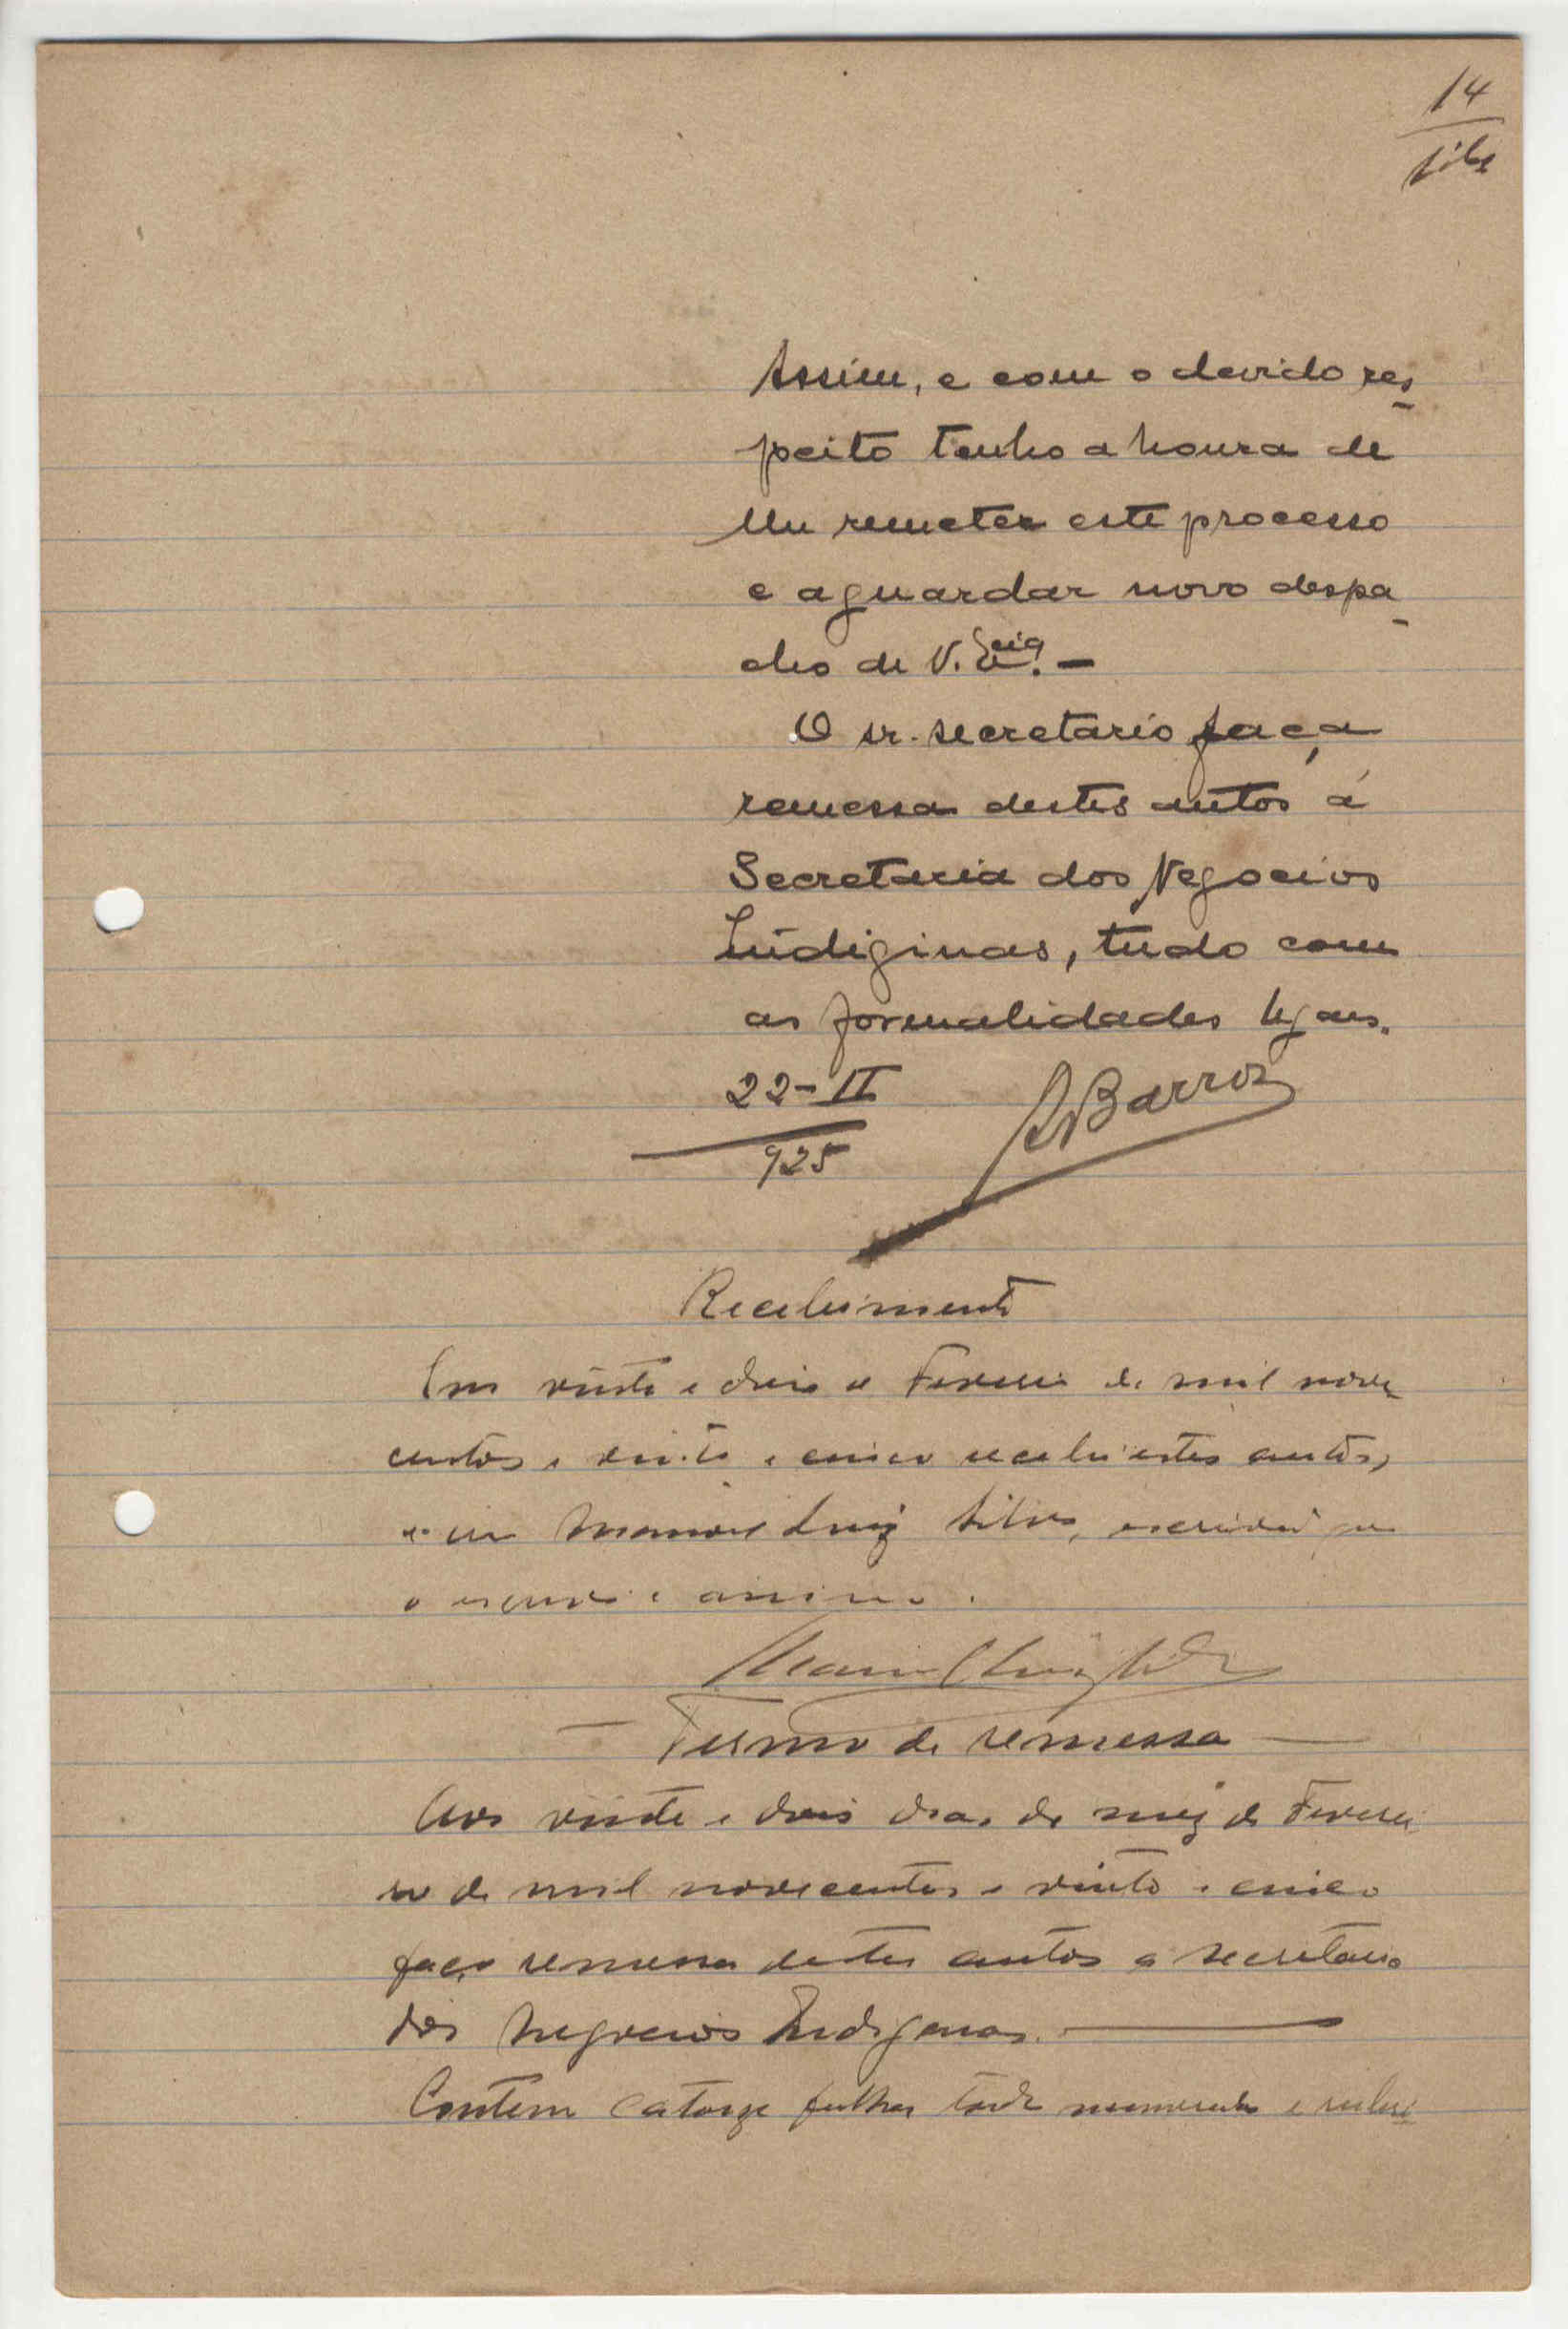 14
Silva
Assim, e com o devido res
peito tenho a honra de
lhe remeter este processo
e aguardar novo despa
cho de V. Excia. —
O sr. secretario faça
remessa destes autos á
Secretaria dos Negocios
Indiginas, tudo com
as formalidades legaes.
22-II
925
Barros
Recebimento
Em vinte e dois de Fevereiro de mil nove
centos e vinte e cinco recebi estes autos,
e eu Manoel Luiz Silva, escrivão que
o escrevi e assino.
Manoel Luiz Silva
— Termo de remessa —
Aos vinte e dois dias do mez de Feverei
ro de mil novecentos e vinte e cinco
faço remessa destes autos a secretaria
dos Negocios Indigenas. —
Contem catorze folhas todas numeradas e rubri